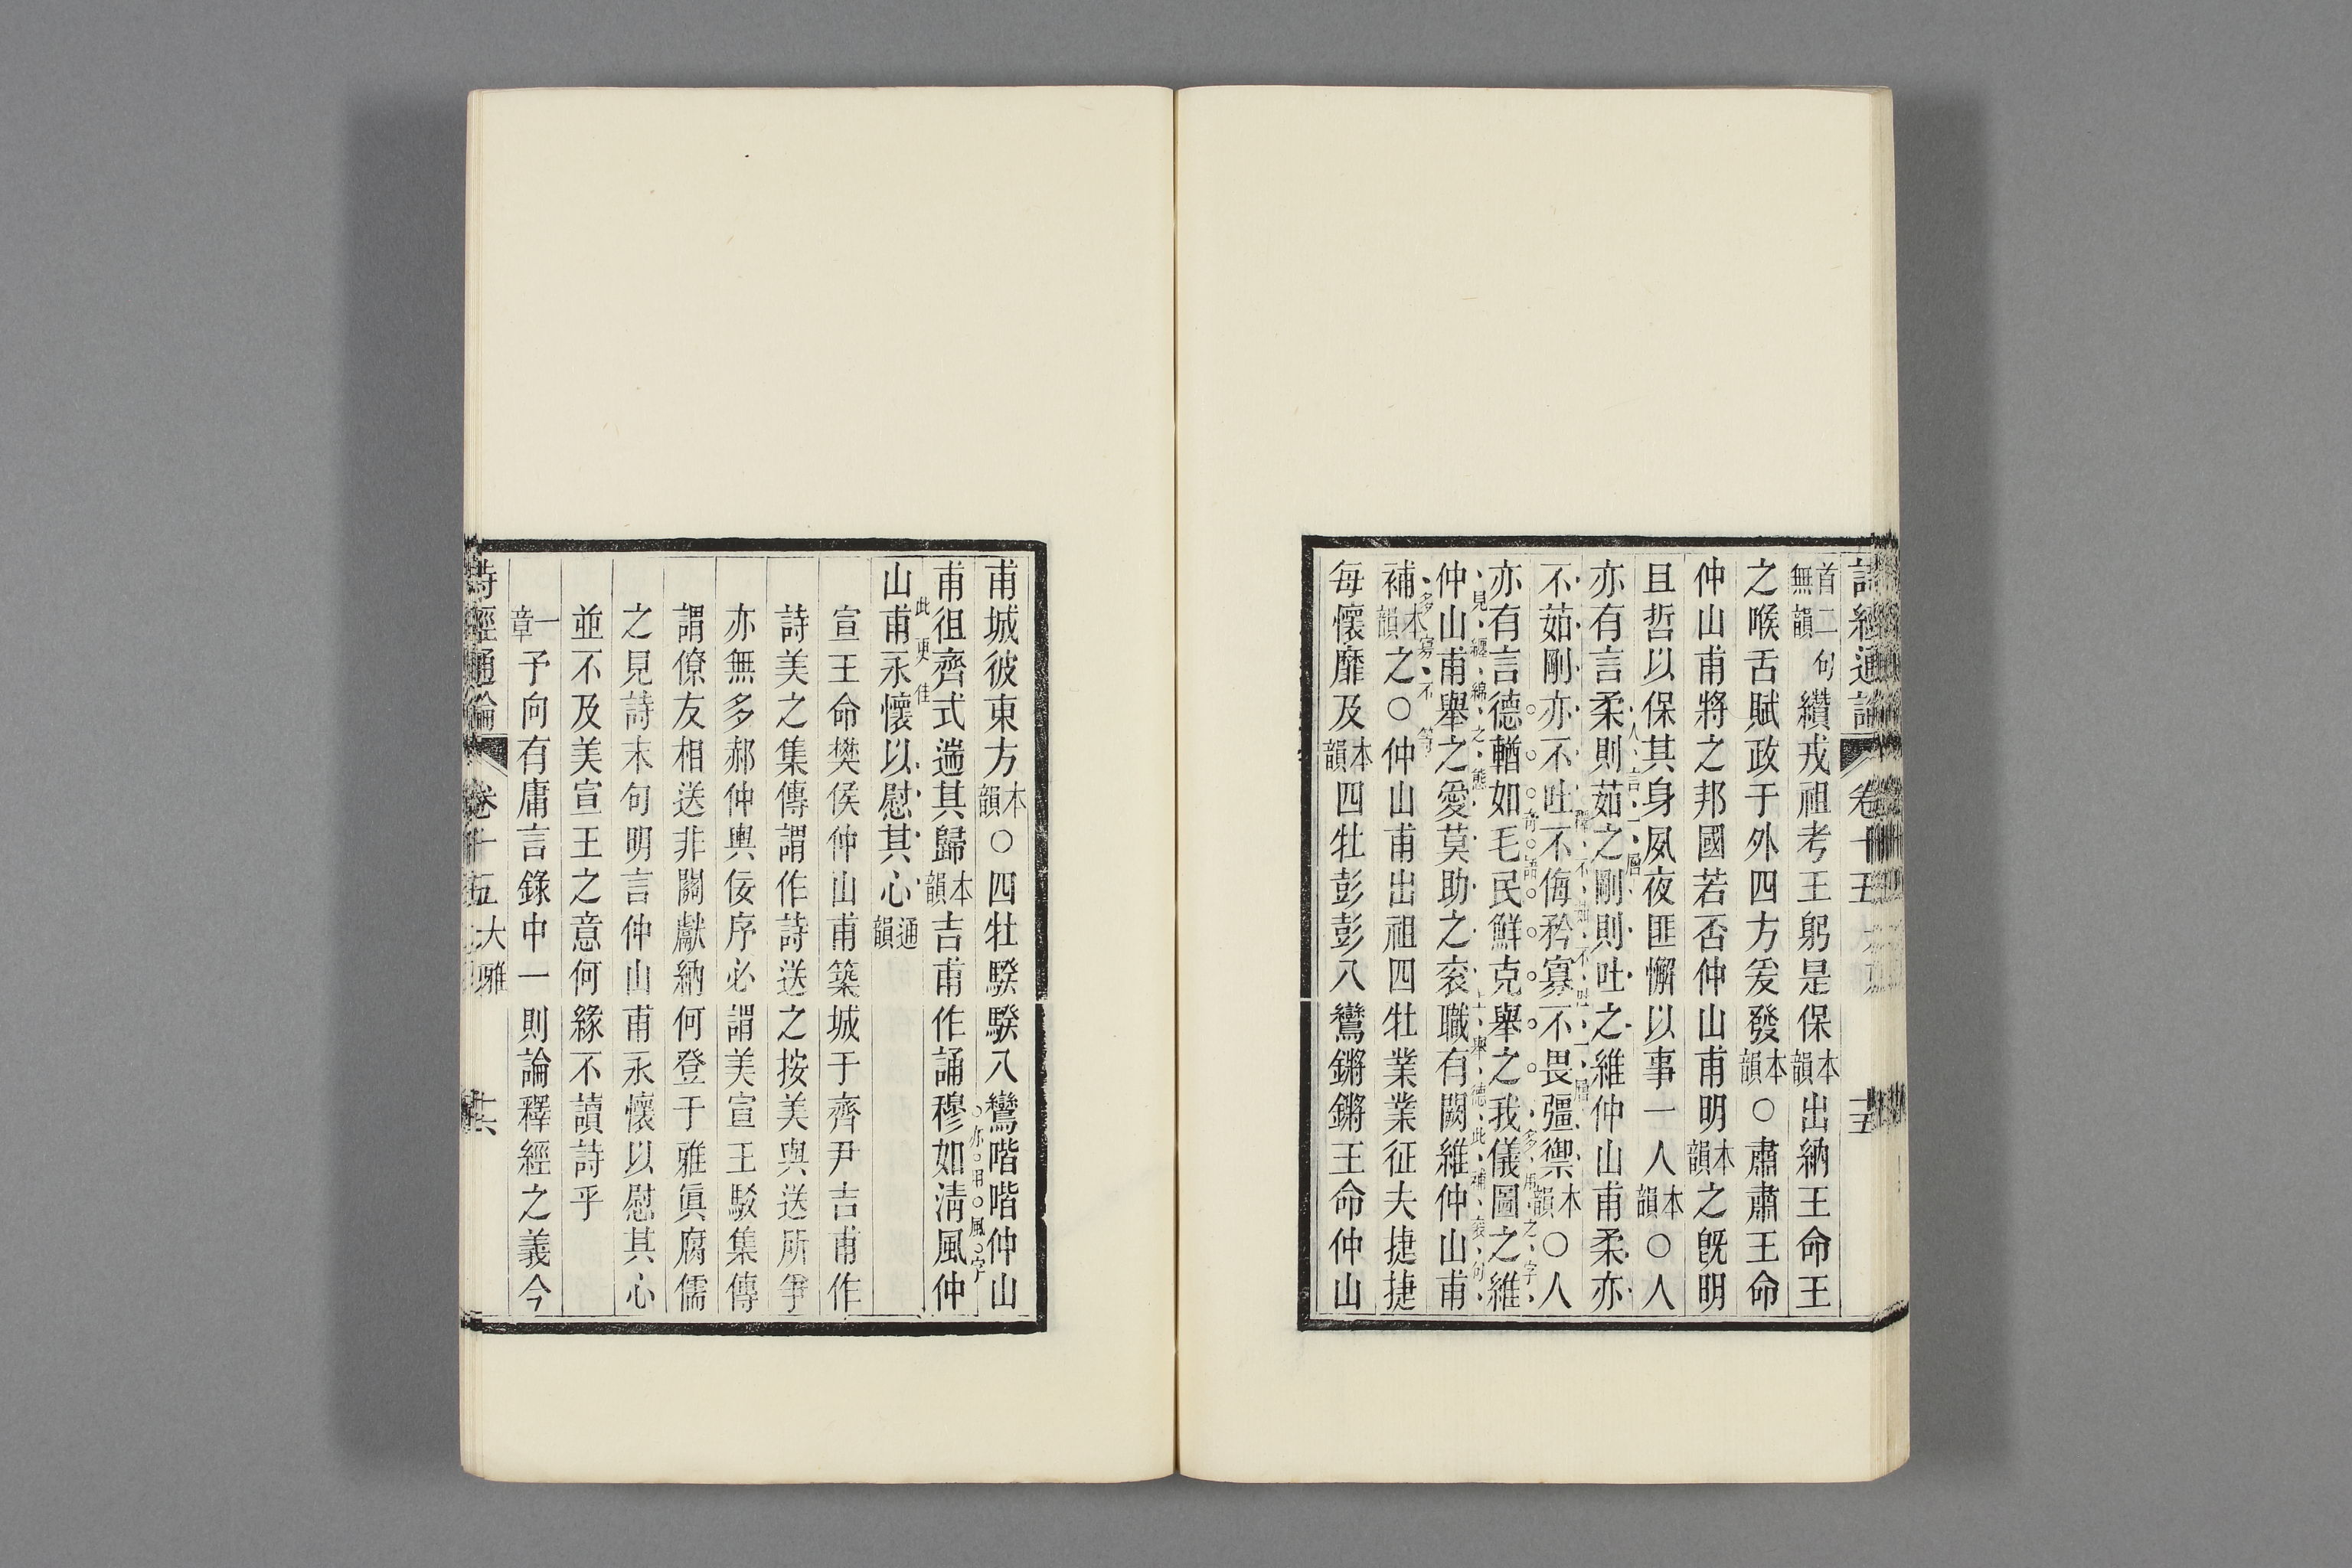 詩經通論 卷十五
首二句無韻 纘戎祖考王躬是保本韻出納王命王
之喉舌賦政于外四方爰發本韻○肅肅王命
仲山甫將之邦國若否仲山甫明本韻之旣明
且哲以保其身夙夜匪懈以事一人本韻○人
亦有言柔則茹之剛則吐之維仲山甫柔亦
不茹剛亦不吐不侮矜寡不畏彊禦本韻○人
亦有言德輶如毛民鮮克舉之我儀圖之維
仲山甫舉之愛莫助之袞職有闕維仲山甫
補本韻之○仲山甫出祖四牡業業征夫捷捷
每懷靡及本韻四牡彭彭八鸞鏘鏘王命仲山
甫城彼東方本韻○四牡騤騤八鸞喈喈仲山
亦用風字
甫徂齊式遄其歸本韻吉甫作誦穆如淸風仲
此更佳
山甫永懷以慰其心通韻
宣王命樊侯仲山甫築城于齊尹吉甫作
詩美之集傳謂作詩送之按美與送所爭
亦無多郝仲輿佞序必謂美宣王駁集傳
謂僚友相送非關獻納何登于雅眞腐儒
之見詩末句明言仲山甫永懷以慰其心
並不及美宣王之意何緣不讀詩乎
一章予向有庸言錄中一則論釋經之義今
詩經通論 卷十五 大雅